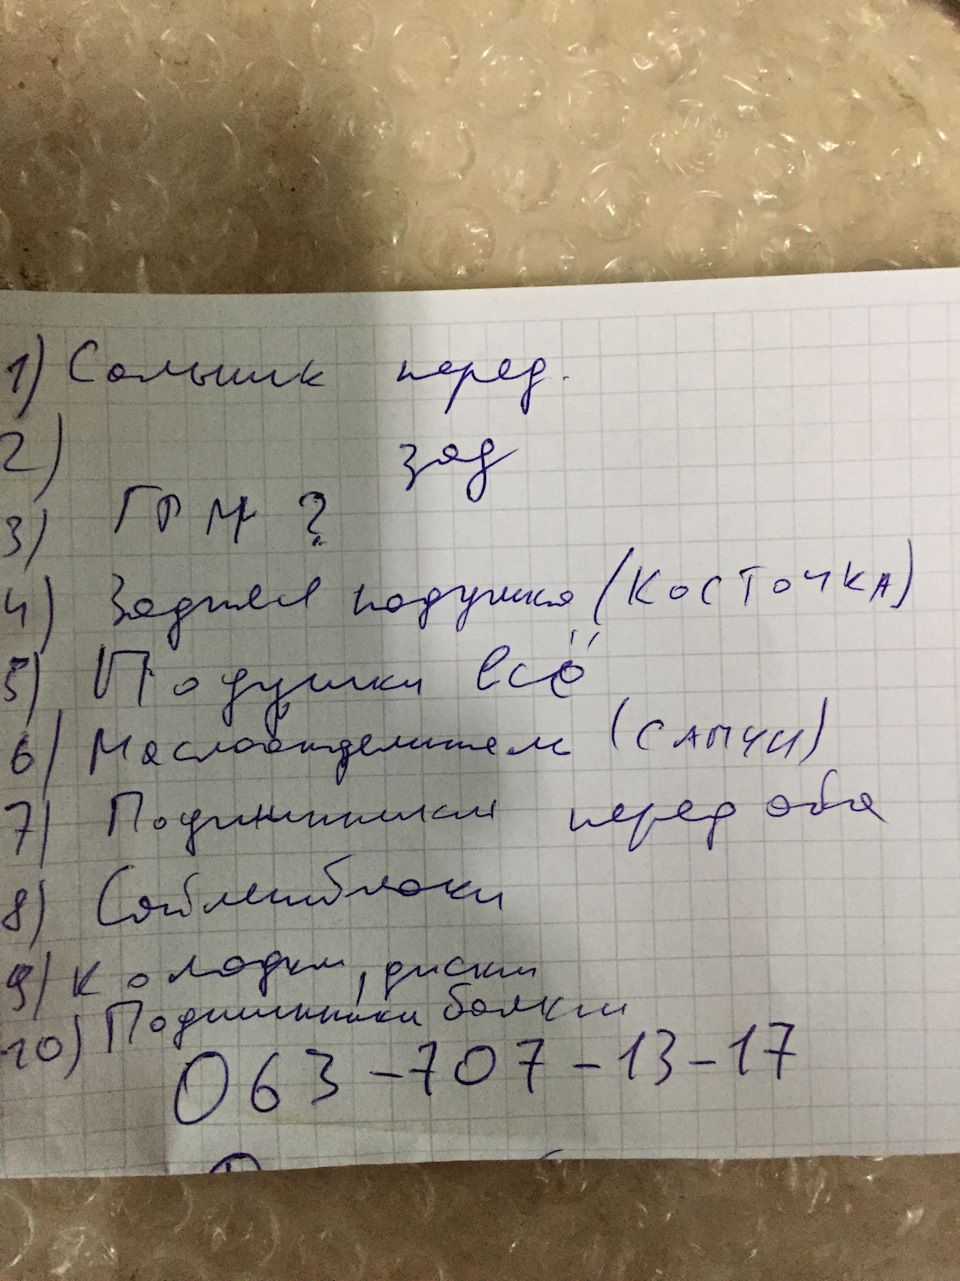 1) Сальник перед.
2) зад
3) ГРМ ?
4) Задняя подушка (КОСТОЧКА)
5) Подушки всё
6) Маслоотделитель (САПУН)
7) Подшипники перед оба
8) Сайленблоки
9) Колодки, диски
10) Подшипники балки
063-707-13-17